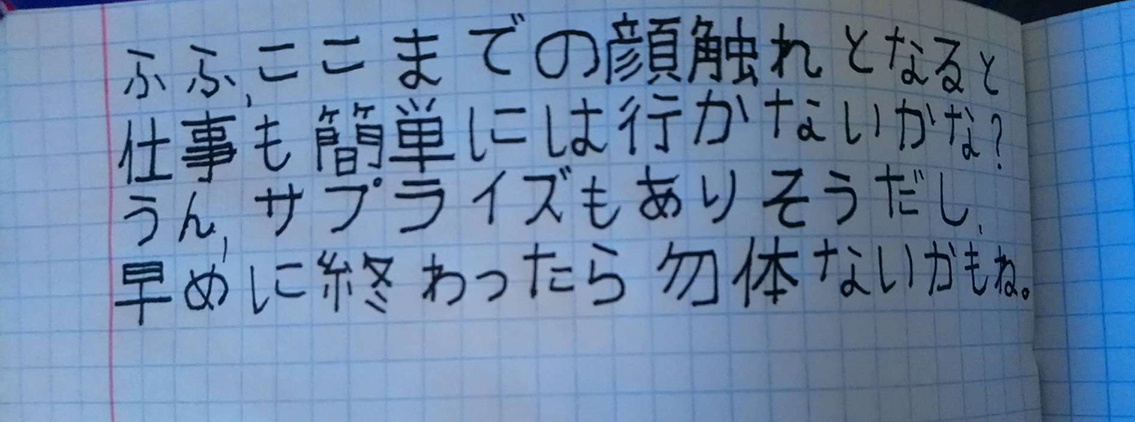 ふふ,ここまでの顔触れとなると
仕事も簡単には行かないかな?
うん,サプライズもありそうだし,
早めに終わったら勿体ないかもね。